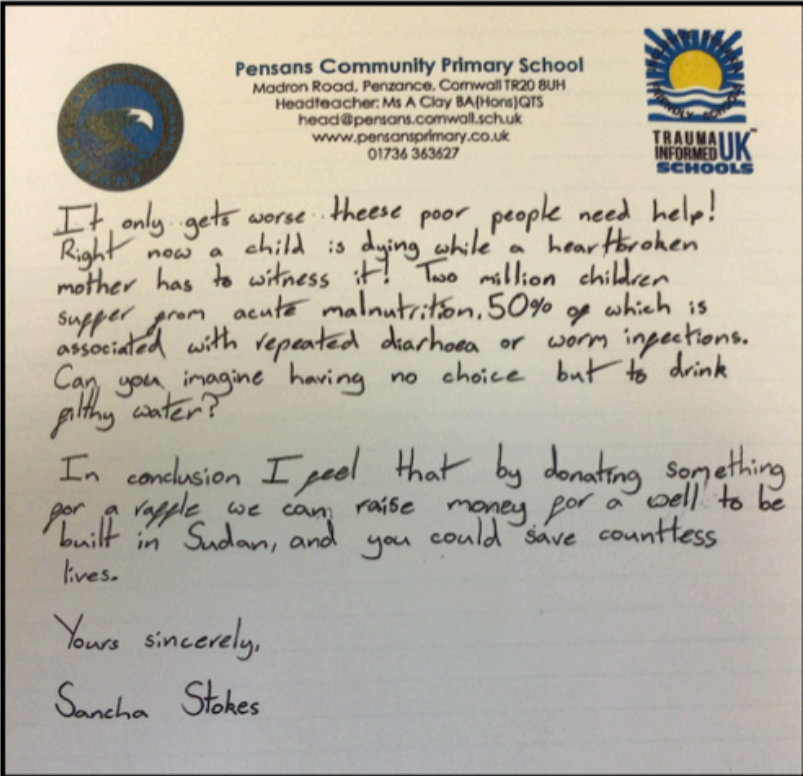 Pensans Community Primary School
Madron Road, Penzance, Cornwall TR20 8UH
Headteacher: Ms A Clay BA(Hons)QTS
head@pensans.cornwall.sch.uk
www.pensansprimary.co.uk
01736 363627
TRAUMA
INFORMED UK
SCHOOLS
It only gets worse theese poor people need help!
Right now a child is dying while a heartbroken
mother has to witness it! Two million children
suffer from acute malnutrition. 50% of which is
associated with repeated diarhoea or worm infections.
Can you imagine having no choice but to drink
filthy water?
In conclusion I feel that by donating something
for a raffle we can raise money for a well to be
built in Sudan, and you could save countless
lives.
Yours sincerely,
Sancha Stokes